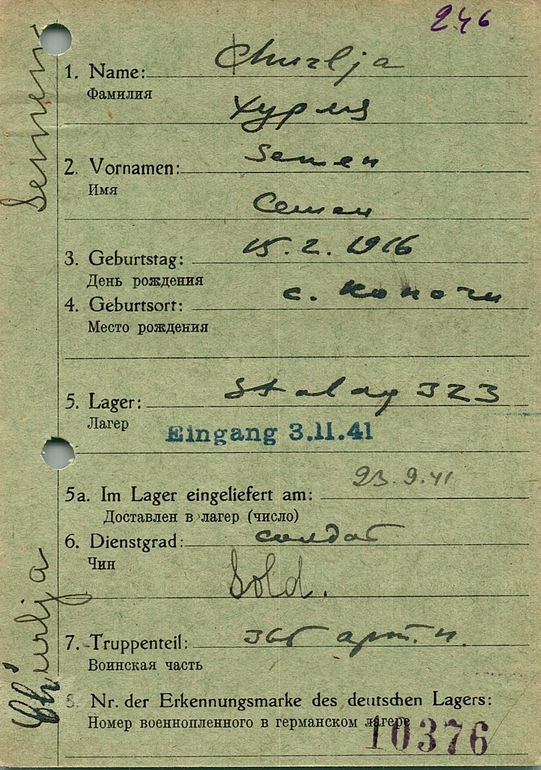 246
1. Name: Churlja
Фамилия
Хурля
2. Vornamen: Semen
Имя
Семен
3. Geburtstag: 15.2.1916
День рождения
4. Geburtsort: с. Коночи
Место рождения
5. Lager: Stalag 323
Лагер
Eingang 3.11.41
5a. Im Lager eingeliefert am: 23.9.41
Доставлен в лагер (число)
6. Dienstgrad: солдат
Чин
Sold.
7. Truppenteil: арт. п.
Воинская часть
8. Nr. der Erkennungsmarke des deutschen Lagers:
Номер военнопленного в германском лагере
10376
Churlja
Semen